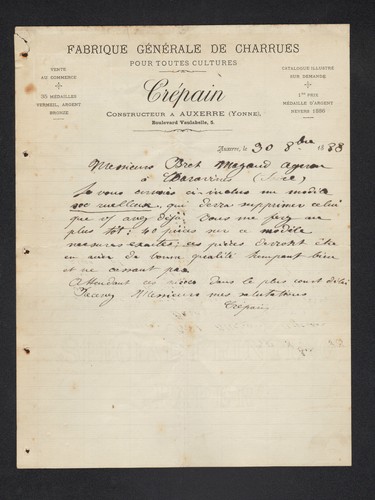 FABRIQUE GÉNÉRALE DE CHARRUES
POUR TOUTES CULTURES
VENTE
AU COMMERCE
35 MÉDAILLES
VERMEIL, ARGENT
BRONZE
CATALOGUE ILLUSTRÉ
SUR DEMANDE
1er PRIX
MÉDAILLE D'ARGENT
NEVERS 1886
Crépain
CONSTRUCTEUR A AUXERRE (YONNE),
Boulevard Vaulabelle, 5.
Auxerre, le 30 8bre 1888
Messieurs Bret
à Charavines (Isère)
Je vous envois ci-inclus un modèle
soc versileux, qui devra supprimer celui
que vs avez déjà vous me ferez au
plus tôt: 40 pièces sur ce modèle
mesures exactes; ces pièces devront être
en acier de bonne qualité trempant bien
et ne cassant pas
Attendant ces pièces dans le plus court délai
Recevez Messieurs mes salutations
Crépain